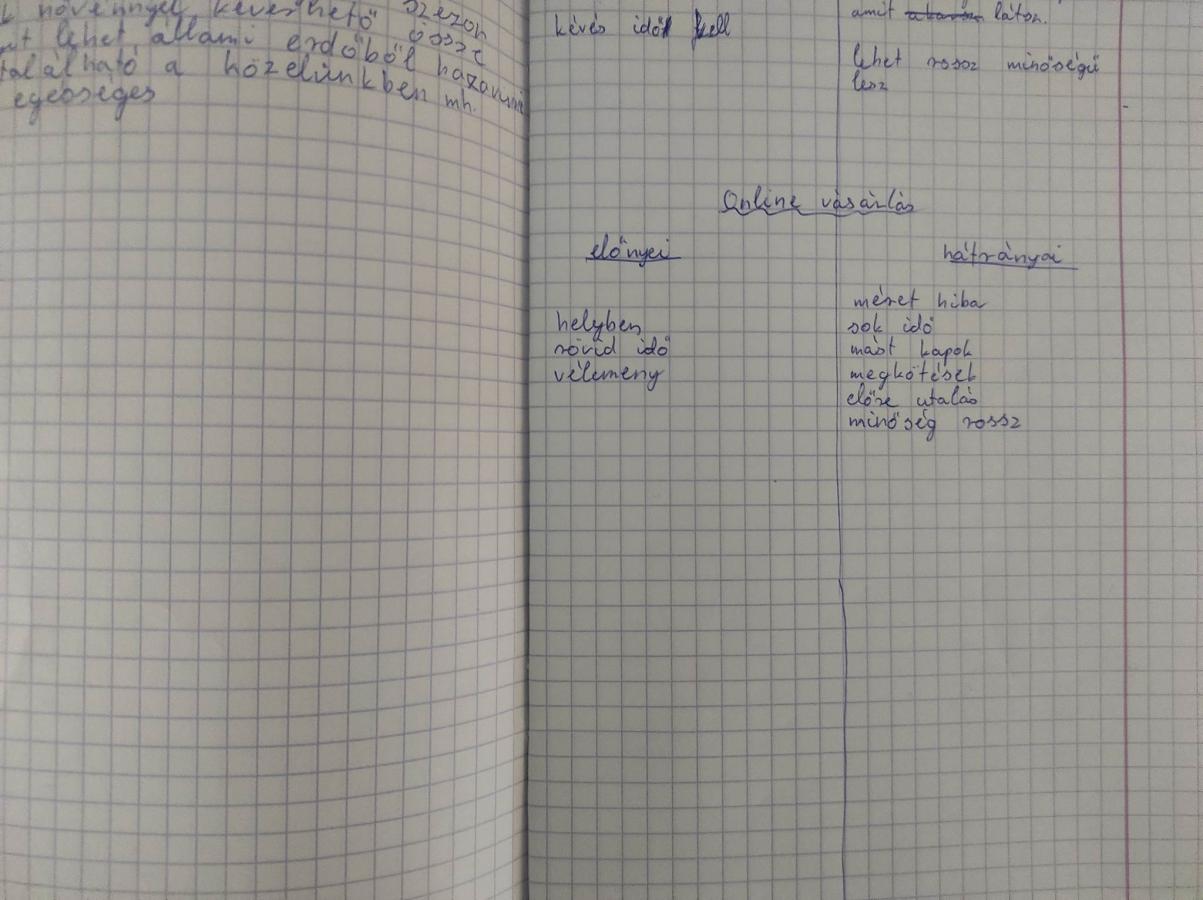 növénnyel keverhető szezon
lehet állami erdőből össze
található a közelünkben hazavinni
egésséges mh.
kevés idő kell
amit látok.
lehet rossz minőségű
lesz
Online vásárlás
előnyei
hátrányai
helyben
rövid idő
vélemény
méret hiba
sok idő
mást kapok
megkötések
előre utalás
minőség rossz